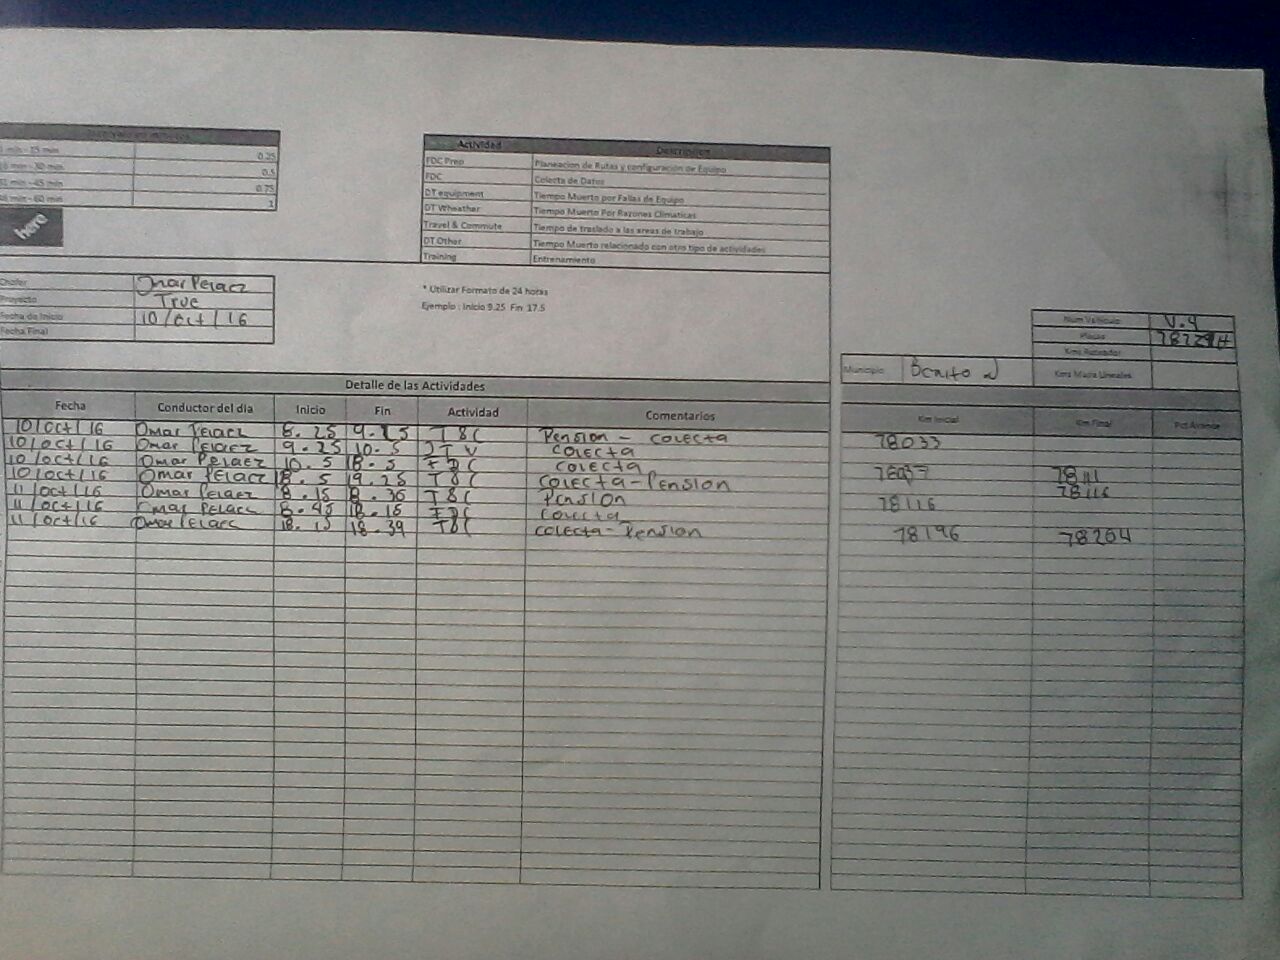 1 min - 15 min 0.25
0.5
31 min - 45 min 0.75
46 min - 60 min 1
here
Actividad Descripcion
FDC Prep Planeacion de Rutas y configuración de Equipo
FDC Colecta de Datos
DT equipment Tiempo Muerto por Fallas de Equipo
DT Wheather Tiempo Muerto Por Razones Climaticas
Travel & Commute Tiempo de traslado a las areas de trabajo
DT Other Tiempo Muerto relacionado con otro tipo de actividades
Training Entrenamiento
Chofer Omar Pelaez
Proyecto True
Fecha de Inicio 10/oct/16
Fecha Final
* Utilizar Formato de 24 horas
Ejemplo : Inicio 9.25 Fin 17.5
Num Vehiculo V.4
Placas
Kms Rodados
Municipio Benito J
Detalle de las Actividades
Fecha Conductor del dia Inicio Fin Actividad Comentarios Km Inicial Km Final Pct Avance
10/oct/16 Omar Pelaez 8.25 9.25 T&C Pension - colecta 78033
10/oct/16 Omar Pelaez 9.25 10.5 colecta
10/oct/16 Omar Pelaez 10.5 18.5 FDC colecta 78037 78111
10/oct/16 Omar Pelaez 18.5 19.25 T&C colecta-Pension 78116
11/oct/16 Omar Pelaez 8.15 8.30 T&C Pension 78116
11/oct/16 Omar Pelaez 8.45 18.15 FDC colecta
11/oct/16 Omar Pelaez 18.15 18.39 T&C colecta-Pension 78196 78204